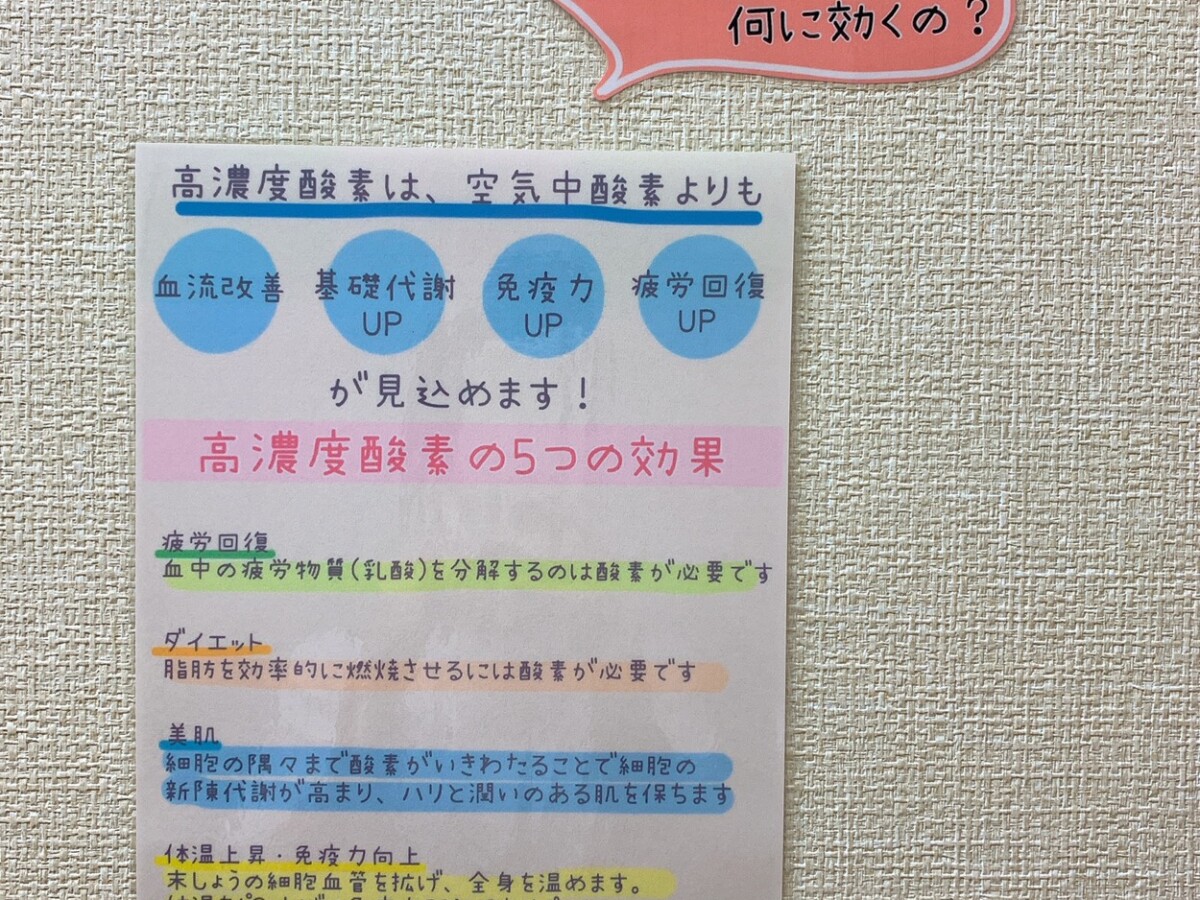 何に効くの？
高濃度酸素は、空気中酸素よりも
血流改善 基礎代謝UP 免疫力UP 疲労回復UP
が見込めます！
高濃度酸素の5つの効果
疲労回復
血中の疲労物質(乳酸)を分解するのは酸素が必要です
ダイエット
脂肪を効率的に燃焼させるには酸素が必要です
美肌
細胞の隅々まで酸素がいきわたることで細胞の
新陳代謝が高まり、ハリと潤いのある肌を保ちます
体温上昇・免疫力向上
末しょうの細胞血管を拡げ、全身を温めます。